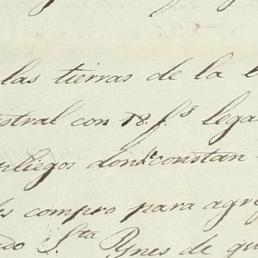 las tierras de la
estral con 18. f.s lega
pliegos donde constan
compro para agre
Sta Ynes de qu